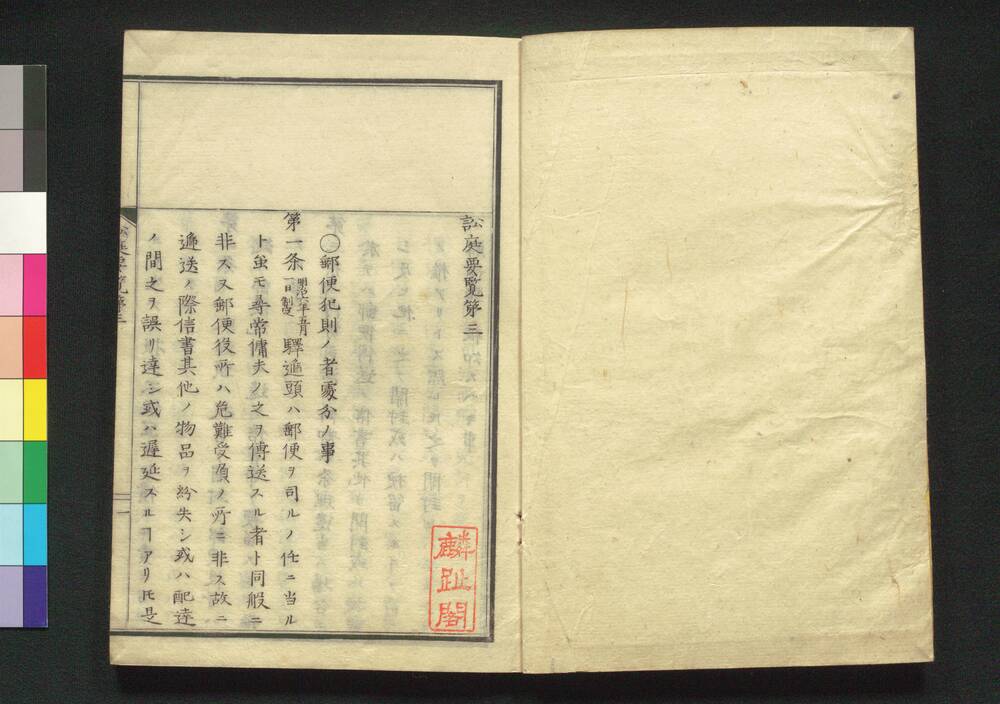 訟庭要覧第三
〇郵便犯則ノ者處分ノ事
第一条明治六年五月一日制定驛逓頭ハ郵便ヲ司ルノ任ニ当ル
ト虽モ尋常傭夫ノ之ヲ傳送スル者ト同般ニ
非スス郵便役所ハ危難受負ノ所ニ非ス故ニ
逓送ノ際信書其他ノ物品ヲ紛失シ或ハ配達
ノ間之ヲ誤リ達シ或ハ遅延スルヿアリ𪜈是
訟庭要覧第三
一
麟趾閣